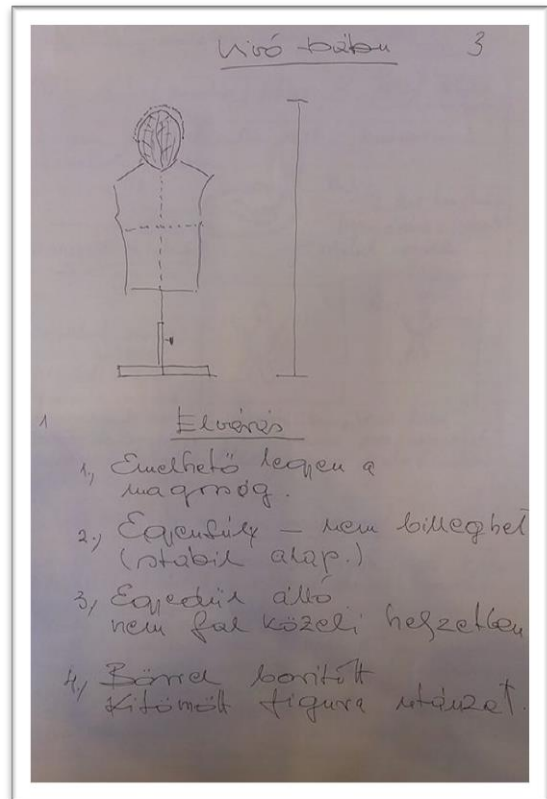 Vívó bábu 3
1
Elvárás
1, Emelhető legyen a
magasság.
2., Egyensúly – nem billeghet
(stabil alap.)
3, Egyedül álló
nem fal közeli helyzetben
4., Bőrrel borított
kitömött figura utánzat.